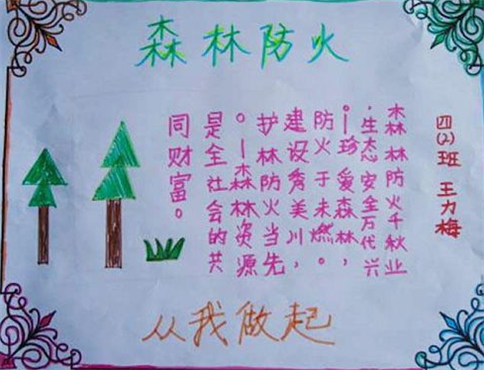 森林防火
四(2)班 王力梅
森林防火千秋业
,生态安全万代兴
。|珍爱森林,
防火于未燃。
建设秀美川,
护林防火当先
。|森林资源
是全社会的共
同财富。
从我做起